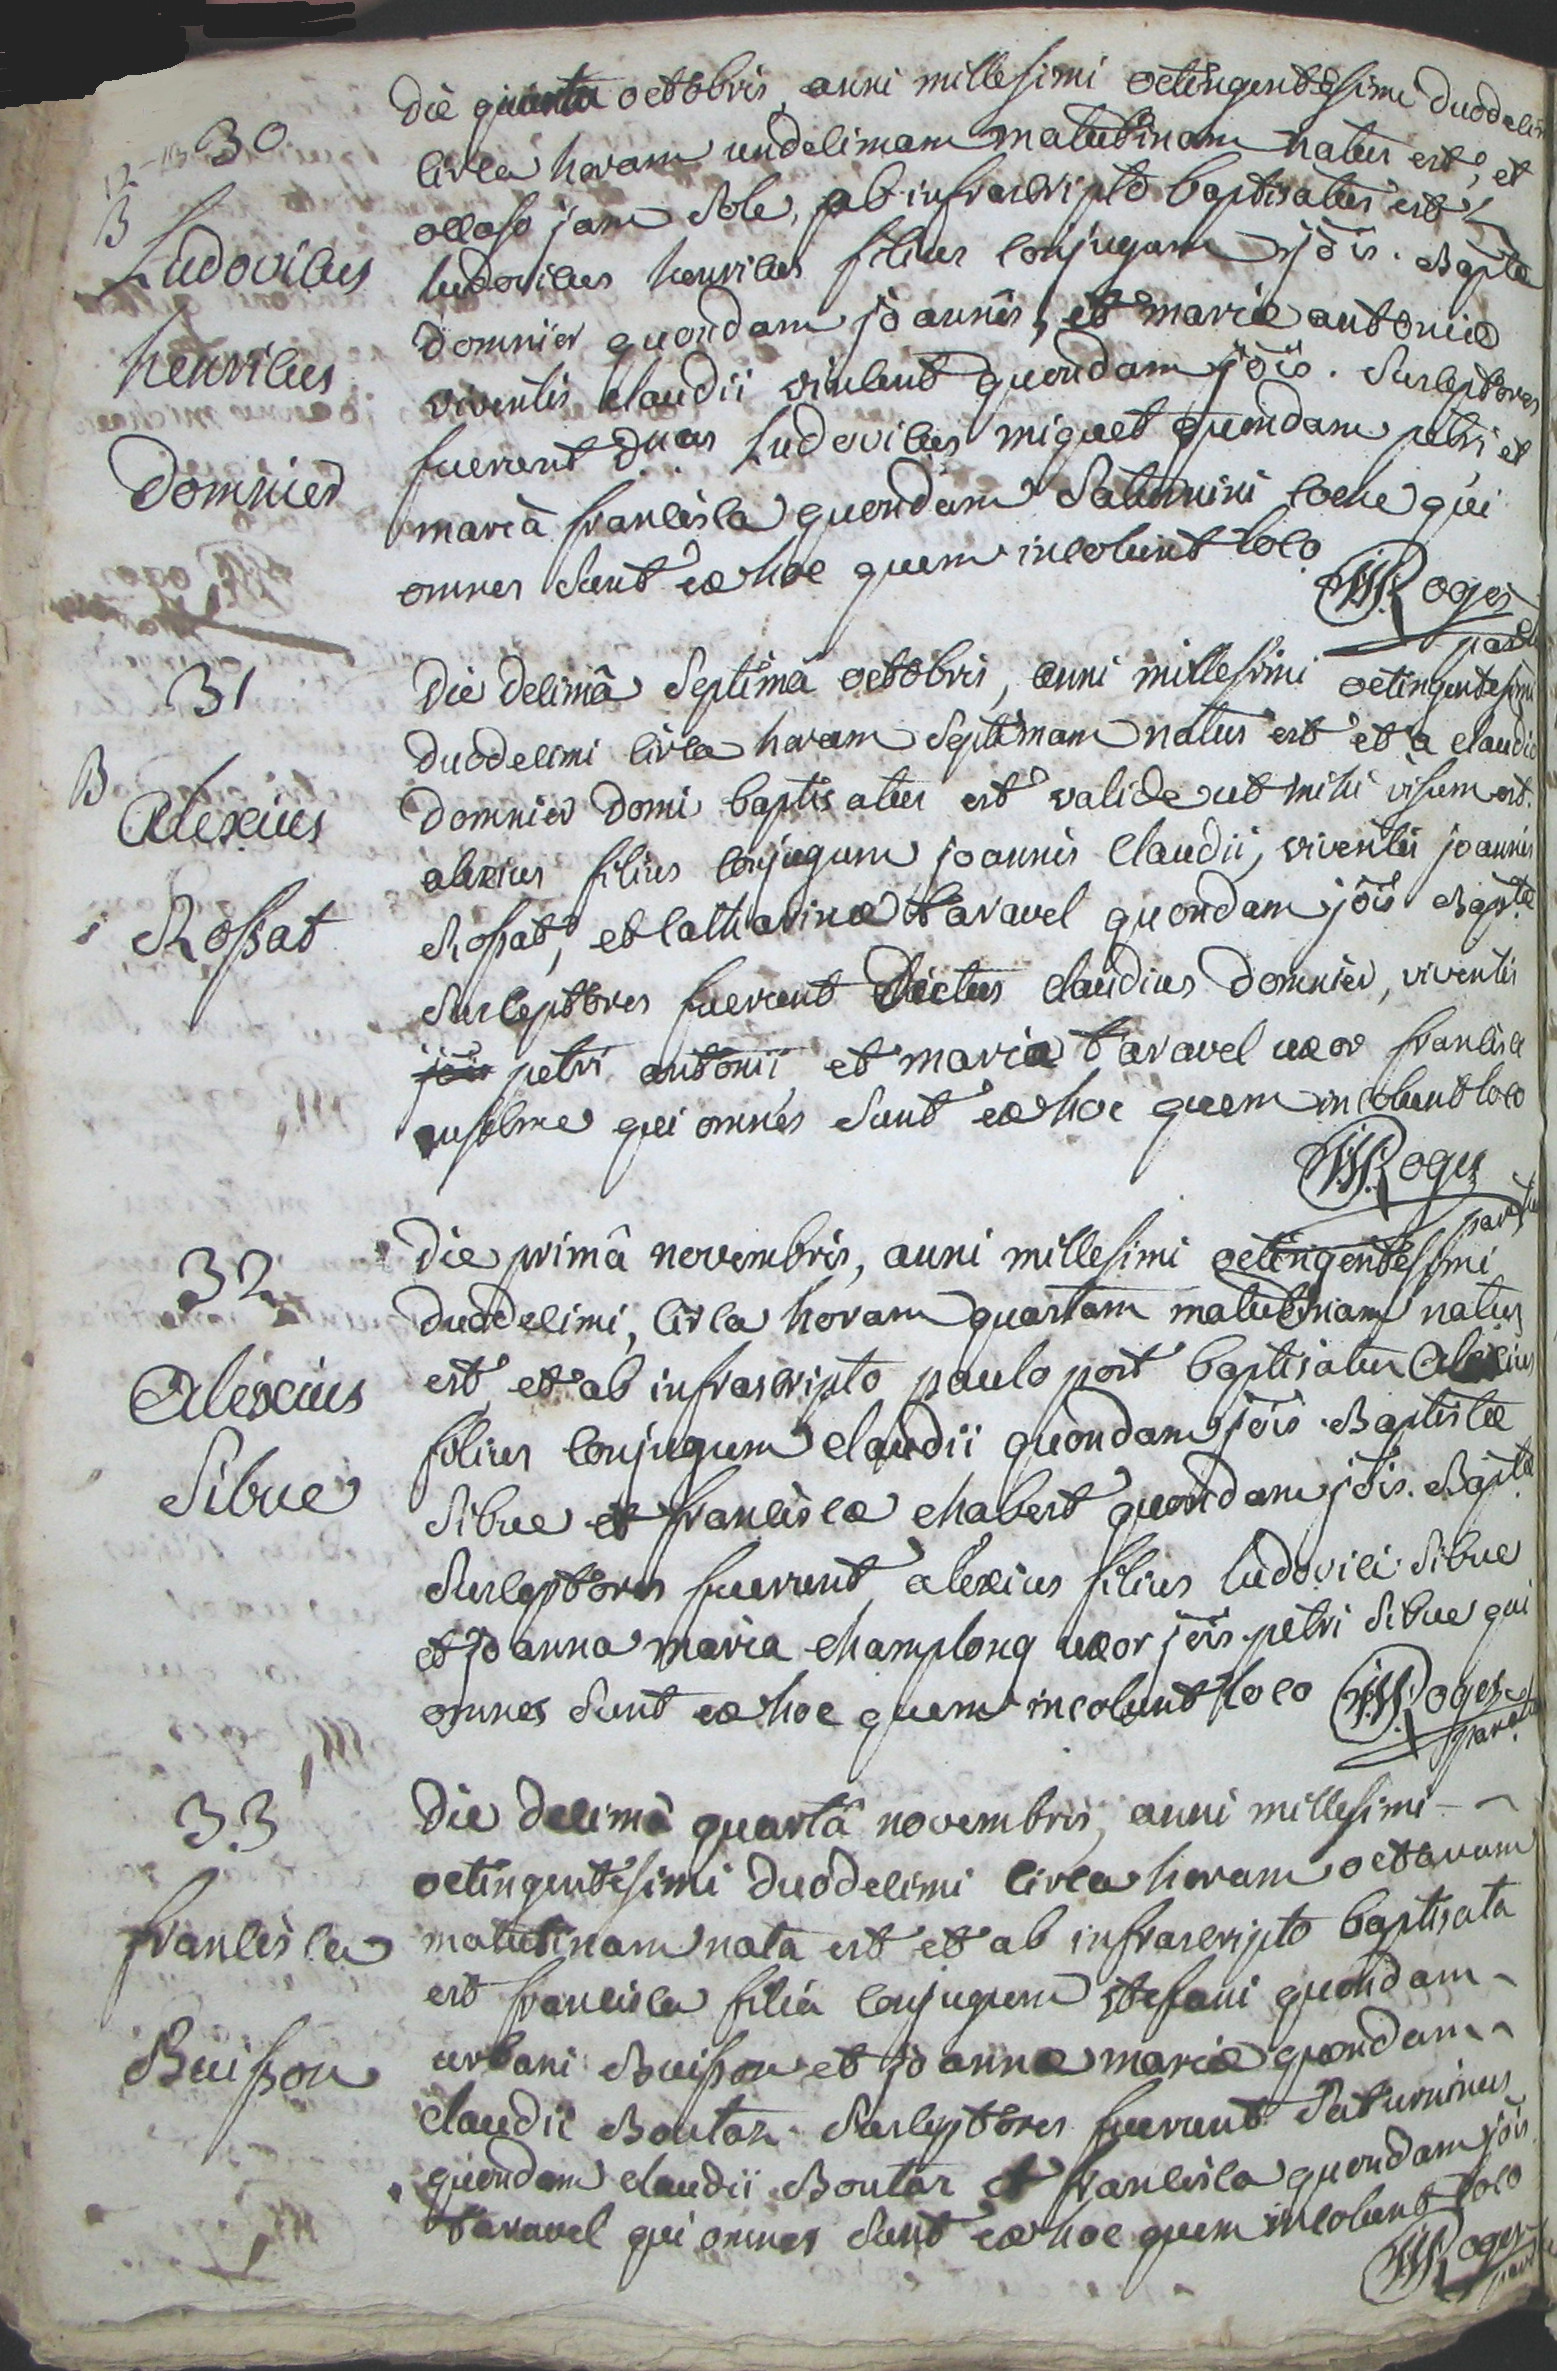 30
B
Ludovicus
henricus
Domnier
Die quinta octobris, anni millesimi octingentesimi duodecimi
circa horam undecimam matutinam natus est, et
occaso jam sole, ab infrascripto baptisatus est
ludovicus henricus filius conjugum jõis. Baptæ
Domnier quondam joannis, et mariæ antoniæ
viventis claudii vincent quondam jõis. Susceptores
fuerunt Ludovicus miquet quondam petri et
maria francisca quondam Saturnini coche qui
omnes sunt ex hoc quem incolunt loco
Roges
31
B
Alexius
Rossat
Die decimâ septimâ octobris, anni millesimi octingentesimi
duodecimi circa horam septimam natus est et a claudio
Domnier domi baptisatus est valide ut mihi visum est.
alexius filius conjugum joannis claudii, viventis joannis
Rossat, et catharinæ taravel quondam jõis Baptæ
Susceptores fuerunt dictus claudius Domnier, viventis
jõis petri antonii et maria taravel uxor francisci
anselme qui omnes sunt ex hoc quem incolunt loco
Roges
32
Alexius
Sibue
Die primâ novembris, anni millesimi octingentesimi
duodecimi, circa horam quartam matutinam natus
est, et ab infrascripto paulo post baptisatus Alexius
filius conjugum claudii quondam jõis Baptistæ
Sibue et franciscæ chabert quondam jõis. Baptæ
Susceptores fuerunt alexius filius ludovici Sibue
et joanna maria champlong uxor jõis petri Sibue qui
omnes sunt ex hoc quem incolunt loco Roges
33
francisca
Buisson
Die decimâ quartâ novembris, anni millesimi
octingentesimi duodecimi circa horam octavam
matutinam nata est et ab infrascripto baptisata
est francisca filia conjugum stefani quondam
urbani Buisson et joannæ mariæ quondam
claudii Boutaz. Susceptores fuerunt Saturninus
quondam claudii Boutaz et francisca quondam jõis
taravel qui omnes sunt ex hoc quem incolunt loco
Roges